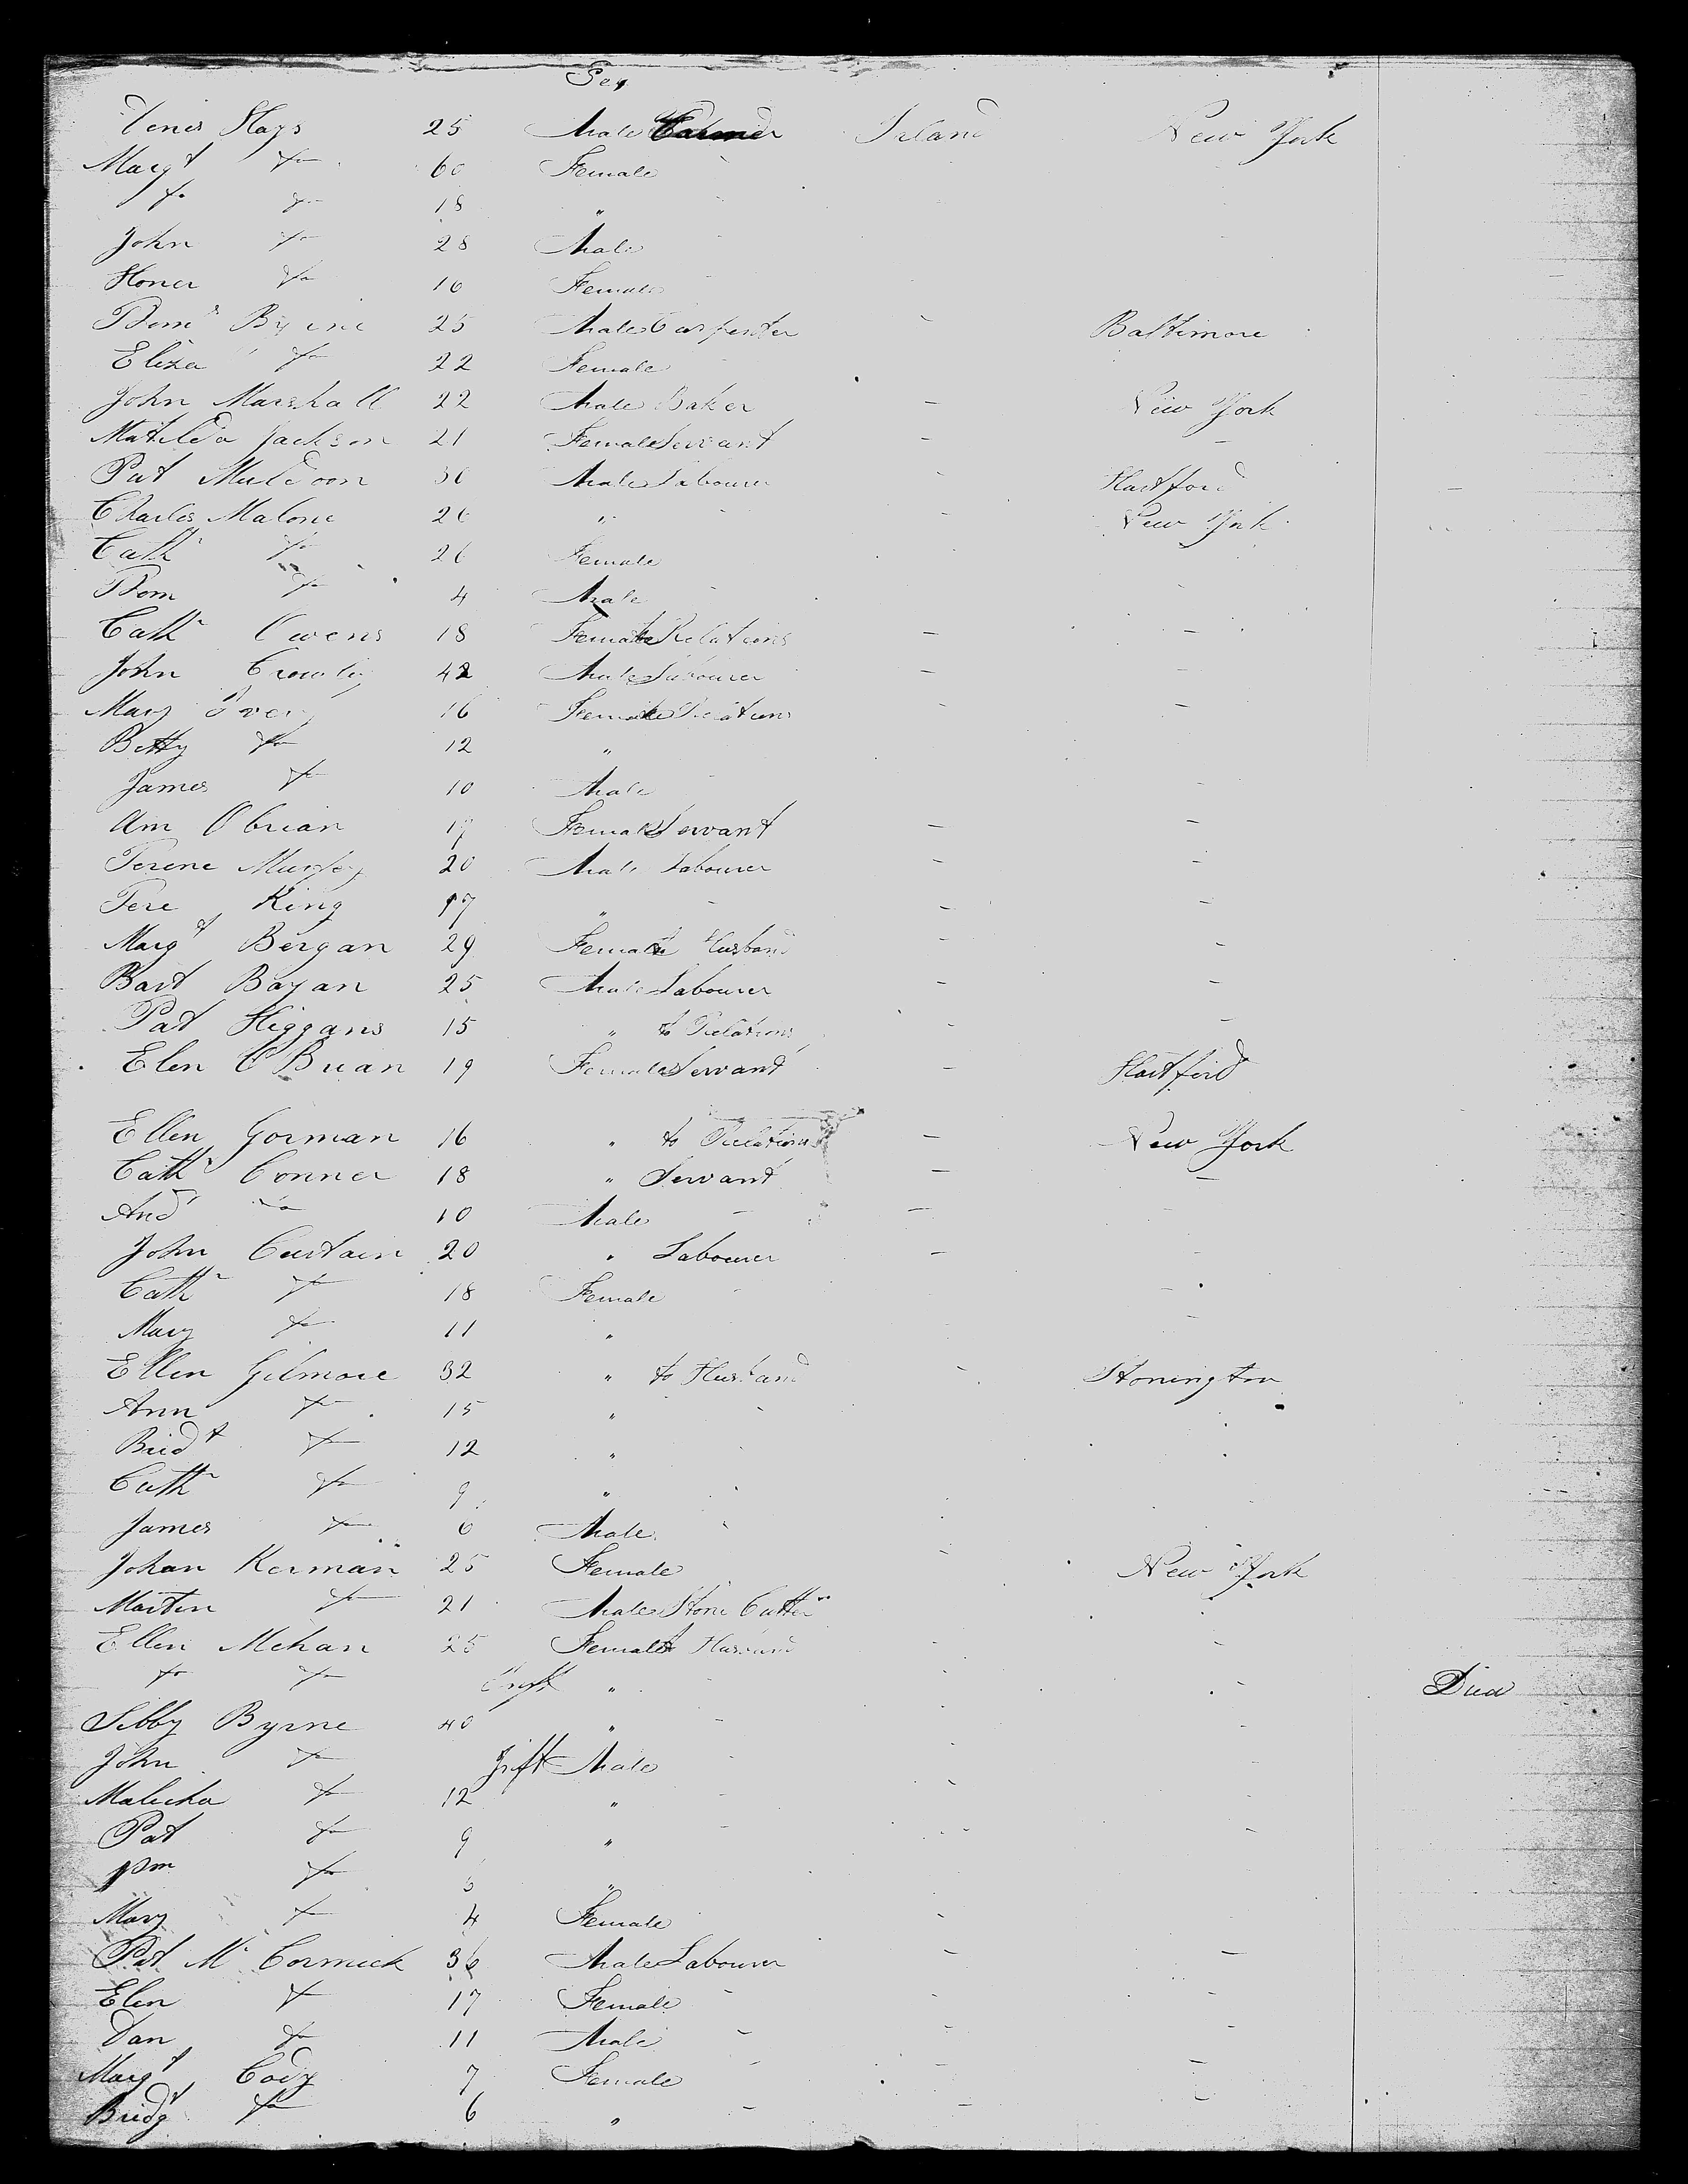 Sex
Denis Hays 25 Male Farmer Ireland New York
Margt do 60 Female
do do 18 "
John do 28 Male
Honer do 16 Female
Domk Byrne 25 Male Carpenter - Baltimore
Eliza do 22 Female
John Marshall 22 Male Baker - New York
Matilda Jackson 21 Female Servant - -
Pat Muldoon 30 Male Labourer - Hartford
Charles Malone 26 " - - New York
Cath do 26 Female
Dom do 4 Male
Cath Owens 18 Female Relations - -
John Crowley 42 Male Labourer - -
Mary 16 Female Relations - -
Betty do 12 "
James do 10 Male
Ann Obrian 17 Female Servant - -
Terene Murphy 20 Male Labourer - -
Tere King 17 " - - -
Margt Bergan 29 Female Husband -
Bart Bayan 25 Male Labourer - -
Pat Higgans 15 " to Relations - -
Elen O Brian 19 Female Servant - Hartford
Ellen Gorman 16 " to Relations - New York
Cath Conner 18 " Servant - -
And do 10 Male - -
John Curtain 20 " Labourer - -
Cath do 18 Female -
Mary do 11 " -
Ellen Gilmore 32 " to Husband - Stonington
Ann do 15 "
Bridt do 12 "
Cath do 9 "
James do 6 Male
Johan Kerman 25 Female - New York
Martin do 21 Male Stone Cutter
Ellen Mehan 25 Female to Husband - -
do do Inft " - - Died
Sibby Byrne 40 " - -
John do Inft Male -
Malicha do 12 " -
Pat do 9 " - -
Wm do "
Mary do 4 Female -
Pat Mc Cormick 36 Male Labourer - -
Elen do 17 Female - - -
Dan do 11 Male - - -
Margt Cody 7 Female - - -
Bridgt do 6 " - - -